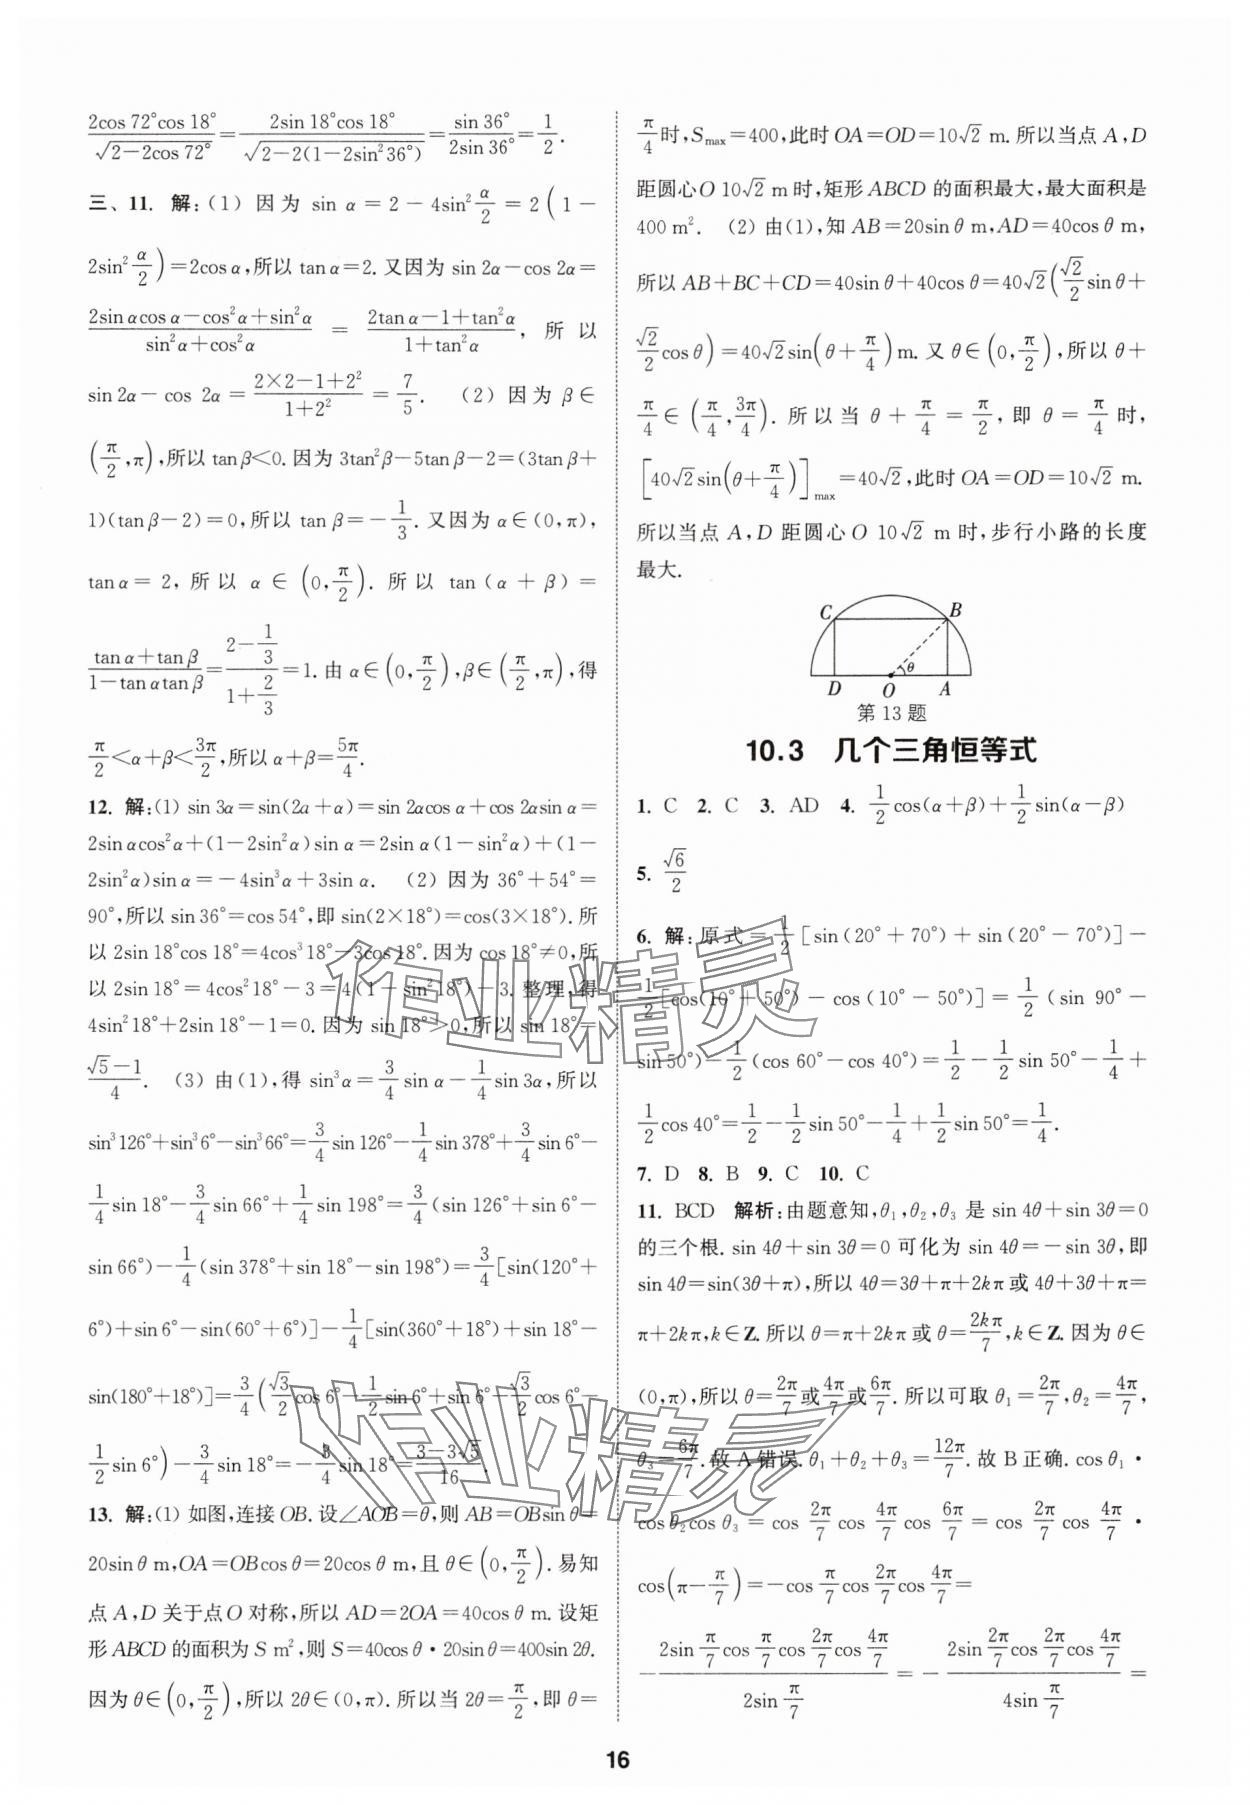 2cos 72°cos 18°/√(2−2cos 72°)=2sin 18°cos 18°/√(2−2(1−2sin²36°))=sin 36°/2sin 36°=1/2.
三、11. 解:(1) 因为 sin α=2−4sin²α/2=2(1−
2sin²α/2)=2cos α,所以 tan α=2. 又因为 sin 2α−cos 2α=
(2sin αcos α−cos²α+sin²α)/(sin²α+cos²α) = (2tan α−1+tan²α)/(1+tan²α), 所以
sin 2α−cos 2α=(2×2−1+2²)/(1+2²)=7/5. (2) 因为 β∈
(π/2,π),所以 tan β<0. 因为 3tan²β−5tan β−2=(3tan β+
1)(tan β−2)=0,所以 tan β=−1/3. 又因为 α∈(0,π),
tan α=2, 所以 α∈(0,π/2). 所以 tan(α+β)=
(tan α+tan β)/(1−tan αtan β)=(2−1/3)/(1+2/3)=1. 由 α∈(0,π/2),β∈(π/2,π),得
π/2<α+β<3π/2,所以 α+β=5π/4.
12. 解:(1) sin 3α=sin(2α+α)=sin 2αcos α+cos 2αsin α=
2sin αcos²α+(1−2sin²α)sin α=2sin α(1−sin²α)+(1−
2sin²α)sin α=−4sin³α+3sin α. (2) 因为 36°+54°=
90°,所以 sin 36°=cos 54°,即 sin(2×18°)=cos(3×18°). 所
以 2sin 18°cos 18°=4cos³18°−3cos 18°. 因为 cos 18°≠0,所
以 2sin 18°=4cos²18°−3=4(1−sin²18°)−3. 整理,得
4sin²18°+2sin 18°−1=0. 因为 sin 18°>0,所以 sin 18°=
(√5−1)/4. (3) 由(1),得 sin³α=3/4 sin α−1/4 sin 3α,所以
sin³126°+sin³6°−sin³66°=3/4 sin 126°−1/4 sin 378°+3/4 sin 6°−
1/4 sin 18°−3/4 sin 66°+1/4 sin 198°=3/4(sin 126°+sin 6°−
sin 66°)−1/4(sin 378°+sin 18°−sin 198°)=3/4[sin(120°+
6°)+sin 6°−sin(60°+6°)]−1/4[sin(360°+18°)+sin 18°−
sin(180°+18°)]=3/4(√3/2 cos 6°−1/2 sin 6°+sin 6°−√3/2 cos 6°−
1/2 sin 6°)−3/4 sin 18°=−3/4 sin 18°=(3−3√5)/16.
13. 解:(1) 如图,连接 OB. 设∠AOB=θ,则 AB=OBsin θ=
20sin θ m,OA=OBcos θ=20cos θ m,且 θ∈(0,π/2). 易知
点 A,D 关于点 O 对称,所以 AD=2OA=40cos θ m. 设矩
形 ABCD 的面积为 S m²,则 S=40cos θ·20sin θ=400sin 2θ.
因为 θ∈(0,π/2),所以 2θ∈(0,π). 所以当 2θ=π/2,即 θ=
π/4 时,Smax=400,此时 OA=OD=10√2 m. 所以当点 A,D
距圆心 O 10√2 m 时,矩形 ABCD 的面积最大,最大面积是
400 m². (2) 由(1),知 AB=20sin θ m,AD=40cos θ m,
所以 AB+BC+CD=40sin θ+40cos θ=40√2(√2/2 sin θ+
√2/2 cos θ)=40√2 sin(θ+π/4)m. 又 θ∈(0,π/2),所以 θ+
π/4∈(π/4,3π/4). 所以当 θ+π/4=π/2,即 θ=π/4 时,
[40√2 sin(θ+π/4)]max=40√2,此时 OA=OD=10√2 m.
所以当点 A,D 距圆心 O 10√2 m 时,步行小路的长度
最大.
C B
θ
D O A
第 13 题
10.3 几个三角恒等式
1. C 2. C 3. AD 4. 1/2 cos(α+β)+1/2 sin(α−β)
5. √6/2
6. 解:原式=1/2[sin(20°+70°)+sin(20°−70°)]−
1/2[cos(10°+50°)−cos(10°−50°)]=1/2(sin 90°−
sin 50°)−1/2(cos 60°−cos 40°)=1/2−1/2 sin 50°−1/4+
1/2 cos 40°=1/2−1/2 sin 50°−1/4+1/2 sin 50°=1/4.
7. D 8. B 9. C 10. C
11. BCD 解析:由题意知,θ₁,θ₂,θ₃ 是 sin 4θ+sin 3θ=0
的三个根. sin 4θ+sin 3θ=0 可化为 sin 4θ=−sin 3θ,即
sin 4θ=sin(3θ+π),所以 4θ=3θ+π+2kπ 或 4θ+3θ+π=
π+2kπ,k∈Z. 所以 θ=π+2kπ 或 θ=2kπ/7,k∈Z. 因为 θ∈
(0,π),所以 θ=2π/7 或 4π/7 或 6π/7. 所以可取 θ₁=2π/7,θ₂=4π/7,
θ₃=6π/7. 故 A 错误. θ₁+θ₂+θ₃=12π/7. 故 B 正确. cos θ₁·
cos θ₂cos θ₃=cos 2π/7 cos 4π/7 cos 6π/7=cos 2π/7 cos 4π/7·
cos(π−π/7)=−cos π/7 cos 2π/7 cos 4π/7=
−(2sin π/7 cos π/7 cos 2π/7 cos 4π/7)/(2sin π/7)=−(2sin 2π/7 cos 2π/7 cos 4π/7)/(4sin π/7)=
作业精灵
作业精灵
16